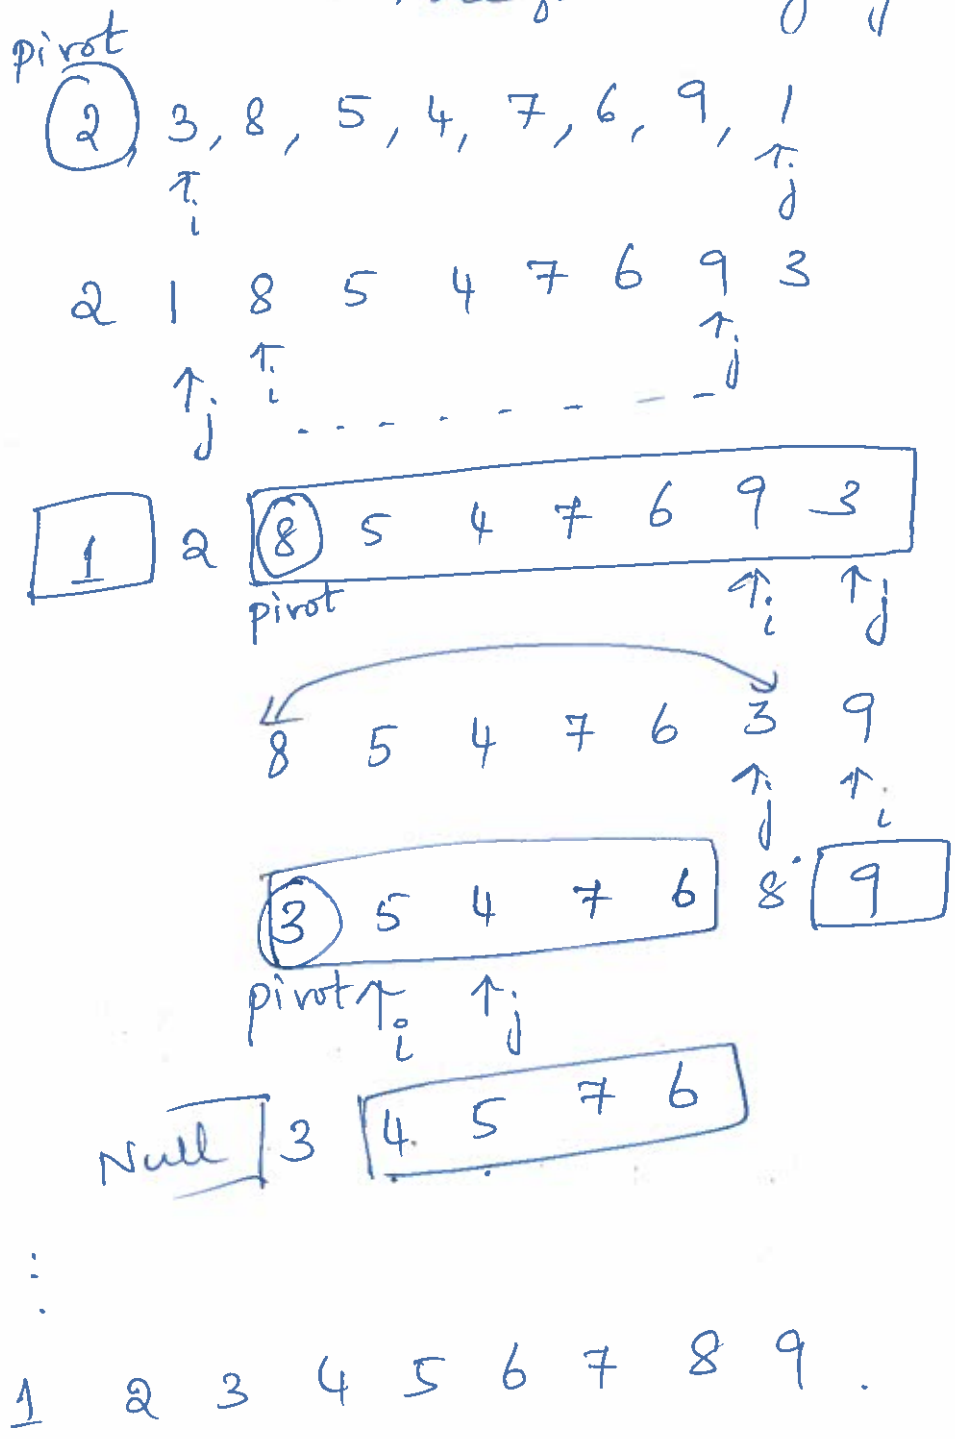 pivot
2, 3, 8, 5, 4, 7, 6, 9, 1
↑i ↑j
2 1 8 5 4 7 6 9 3
↑j ↑i ↑j
1 2 8 5 4 7 6 9 3
pivot ↑i ↑j
8 5 4 7 6 3 9
↑j ↑i
3 5 4 7 6 8 9
pivot ↑i ↑j
Null 3 4 5 7 6
1 2 3 4 5 6 7 8 9 .